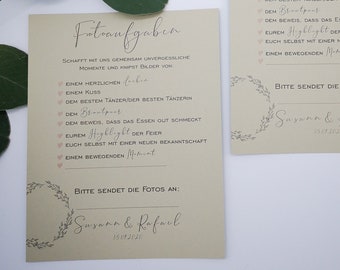 Fotoaufgaben
Schafft mit uns gemeinsam unvergessliche
Momente und knipst Bilder von
einem herzlichen Lachen
einem Kuss
dem besten Tänzer/der besten Tänzerin
dem Brautpaar
dem Beweis, dass das Essen gut schmeckt
eurem Highlight der Feier
euch selbst mit einer neuen Bekanntschaft
einem bewegenden Moment
Bitte sendet die Fotos an:
Susann & Rafael
dem Brautpaar
dem Beweis, dass das Es
eurem Highlight
euch selbst mit einer
einem bewegenden
Bitte sendet
Susann